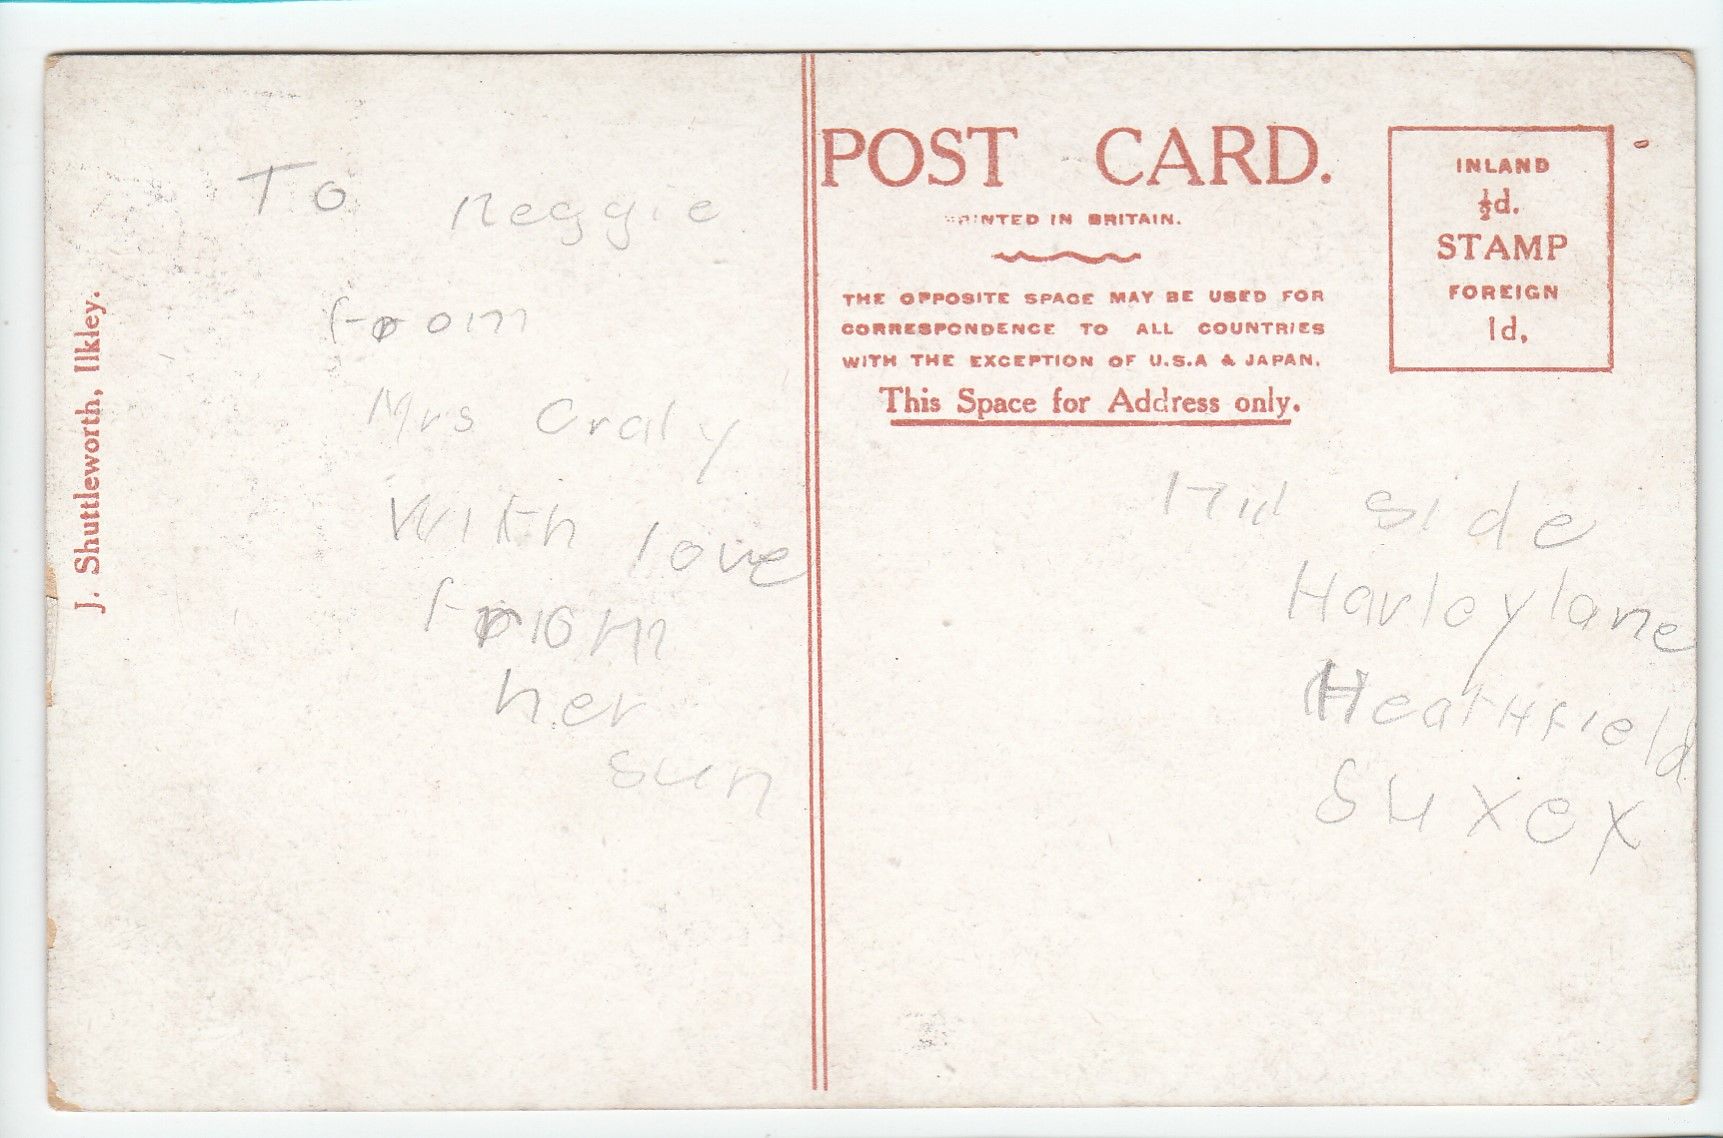 J. Shuttleworth, Ilkley.
To Reggie
from
Mrs Craly
With love
from
her
sun
POST CARD.
PRINTED IN BRITAIN.
THE OPPOSITE SPACE MAY BE USED FOR
CORRESPONDENCE TO ALL COUNTRIES
WITH THE EXCEPTION OF U.S.A & JAPAN.
This Space for Address only.
INLAND
½d.
STAMP
FOREIGN
1d.
side
Harley lane
Heathfield
Suxex